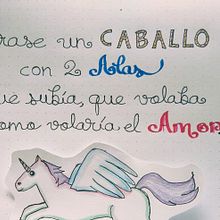 rase un CABALLO
con 2 Alas
ue subía, que volaba
omo volaría el Amor